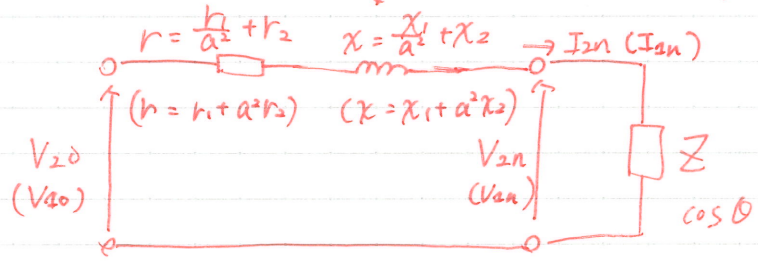 r = r₁/a² + r₂
x = x₁/a² + x₂
→ I₂n (I₁n)
(r = r₁ + a²r₂)
(x = x₁ + a²x₂)
V₂₀
(V₁₀)
V₂n
(V₁n)
Z
cos θ